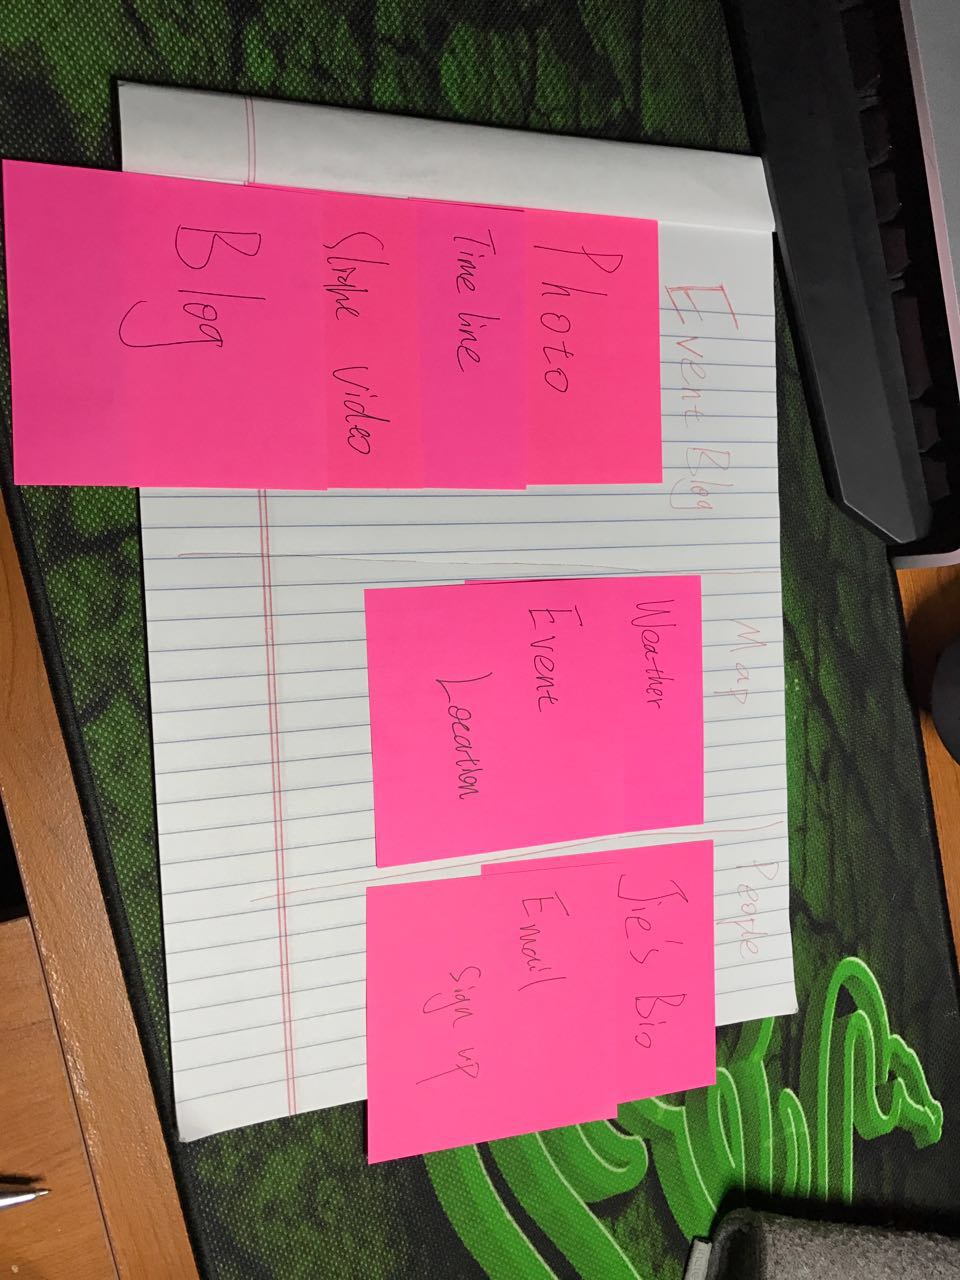 Event Blog
Photo
Time line
video
Blog
Map
Weather
Event
Location
People
Jie's Bio
Email
sign up